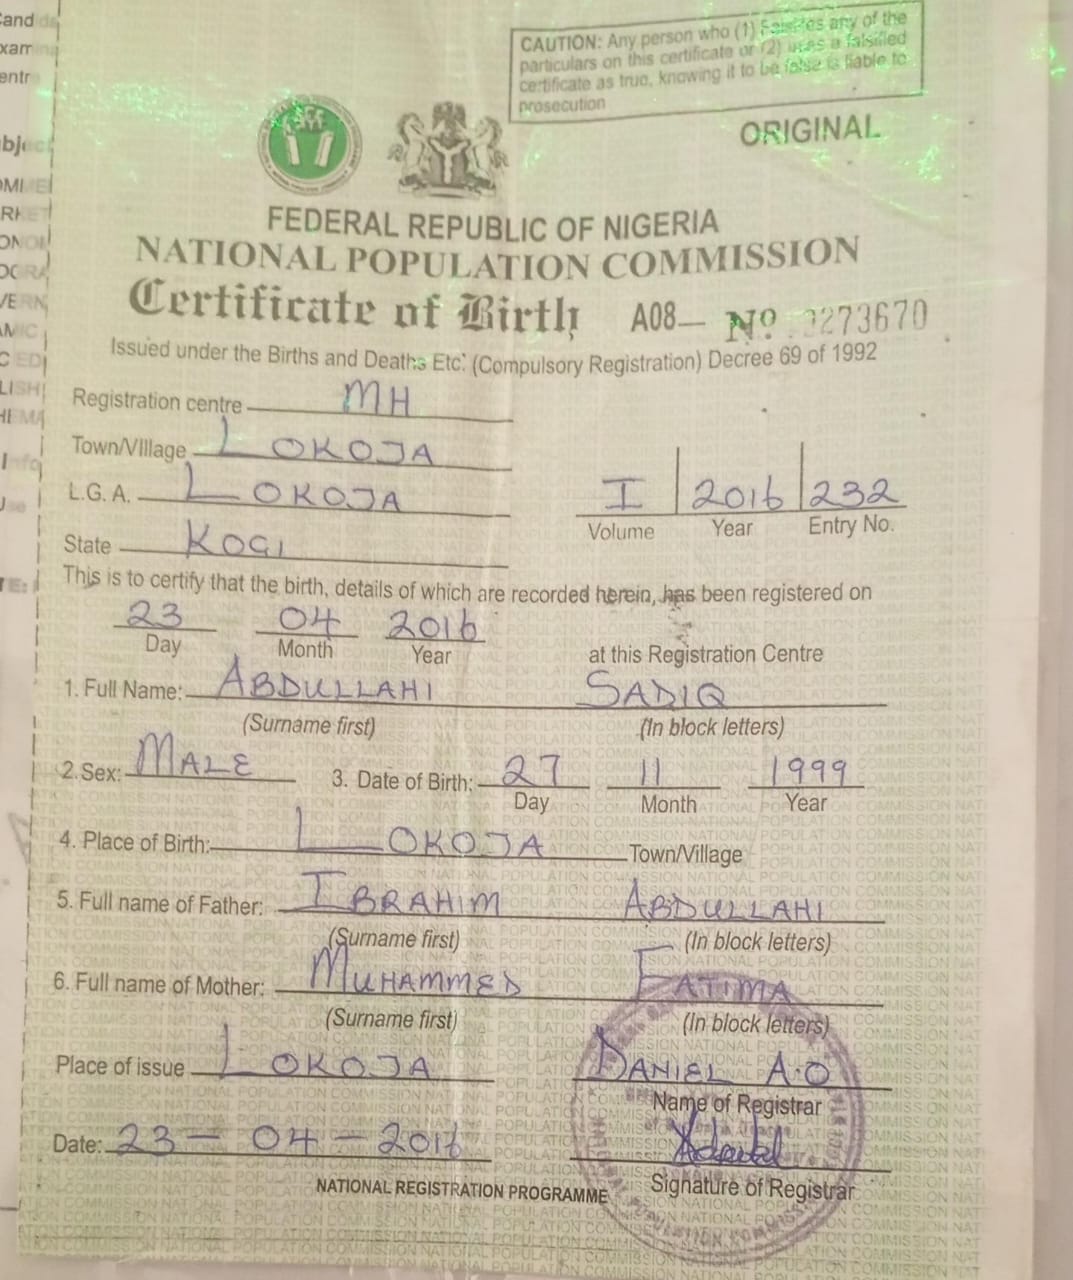 CAUTION: Any person who (1) Falsifies any of the
particulars on this certificate or (2) uses a falsified
certificate as true, knowing it to be false is liable to
prosecution
ORIGINAL
FEDERAL REPUBLIC OF NIGERIA
NATIONAL POPULATION COMMISSION
Certificate of Birth A08— No 273670
Issued under the Births and Deaths Etc. (Compulsory Registration) Decree 69 of 1992
Registration centre MH
Town/VIllage LOKOJA
L.G.A. LOKOJA
I 2016 232
Volume Year Entry No.
State KOGI
This is to certify that the birth, details of which are recorded herein, has been registered on
23 04 2016
Day Month Year at this Registration Centre
1. Full Name: ABDULLAHI SADIQ
(Surname first) (In block letters)
2. Sex: MALE 3. Date of Birth: 27 11 1999
Day Month Year
4. Place of Birth: LOKOJA Town/Village
5. Full name of Father: IBRAHIM ABDULLAHI
(Surname first) (In block letters)
6. Full name of Mother: MUHAMMED FATIMA
(Surname first) (In block letters)
Place of issue LOKOJA DANIEL A.O
Name of Registrar
Date: 23 – 04 – 2016
NATIONAL REGISTRATION PROGRAMME Signature of Registrar